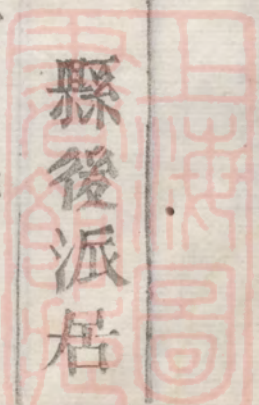 縣後派居
上海圖
書館藏